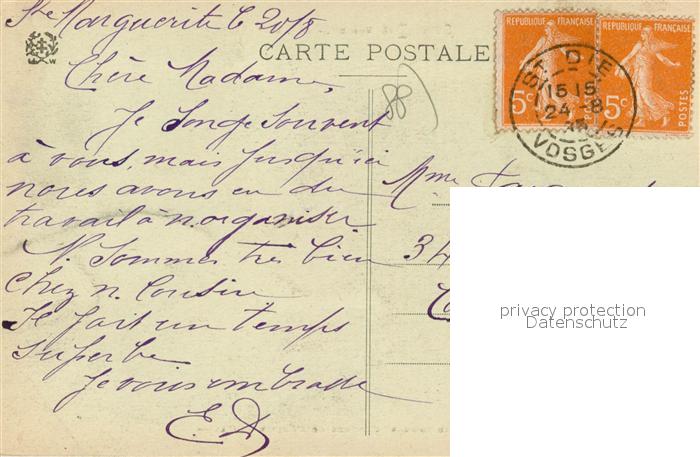 Ste Marguerite le 20/8
CARTE POSTALE
Chère Madame,
Je songe souvent
à vous, mais jusqu'ici
nous avons eu du
travail à n. organiser
N. sommes très bien
chez n. Cousin
Il fait un temps
superbe
Je vous embrasse
E. D
88
REPUBLIQUE FRANÇAISE
5c
REPUBLIQUE FRANÇAISE
5c
POSTES
ST. DIE
15 15
24 - 8
VOSGES
Mme
34
privacy protection
Datenschutz